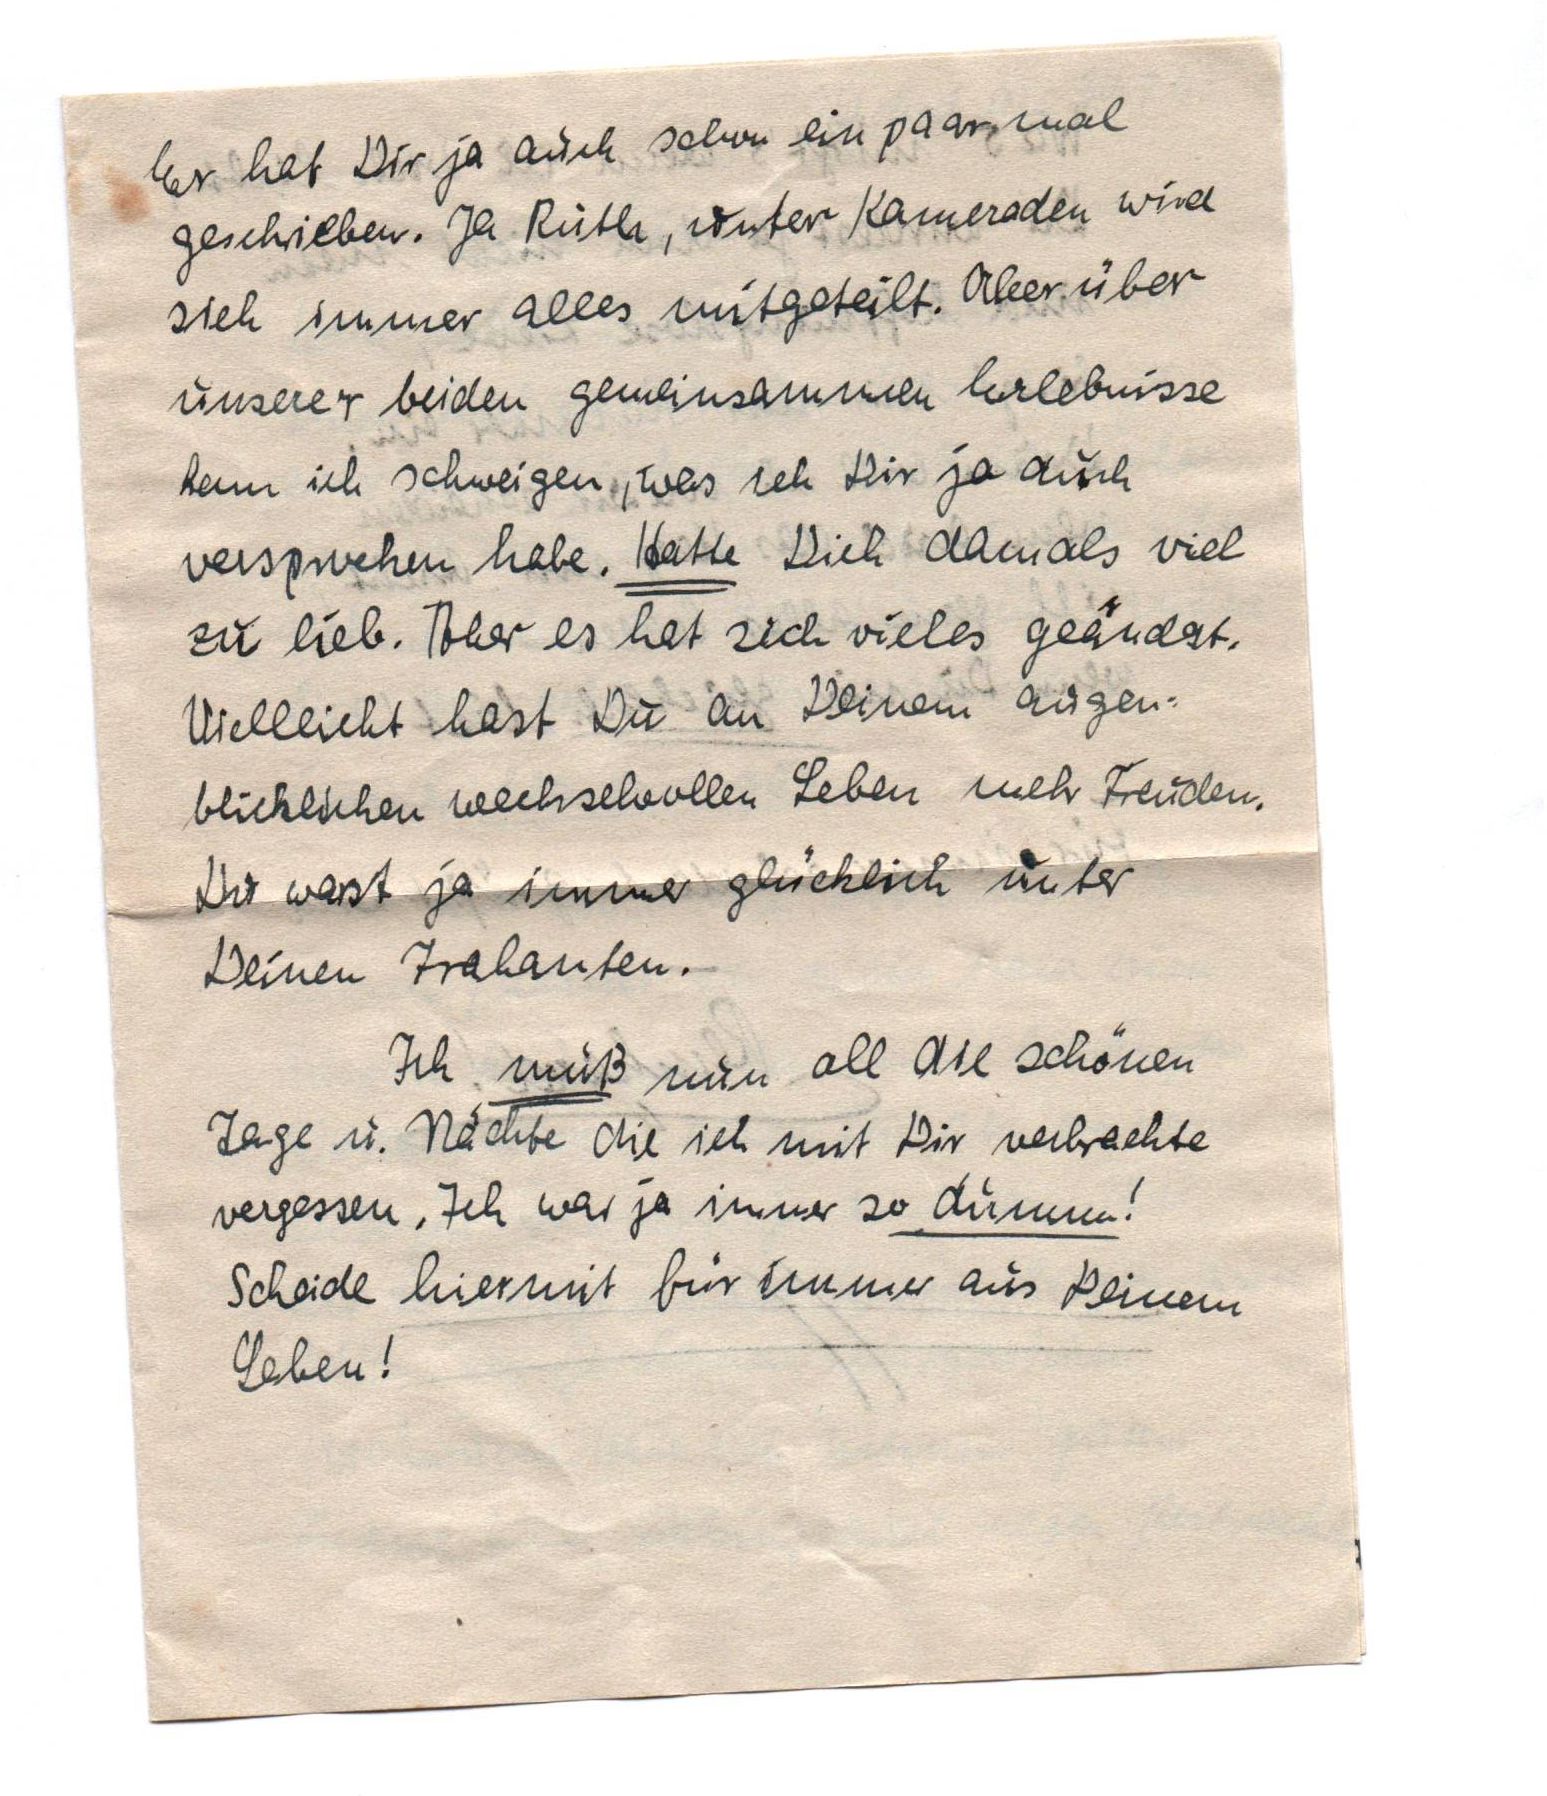 Er hat Dir ja auch schon ein paar mal
geschrieben. Ja Ruth, unter Kameraden wird
sich immer alles mitgeteilt. Aber über
unserer beiden gemeinsammen Erlebnisse
kann ich schweigen, was ich Dir ja auch
versprochen habe. Hatte Dich damals viel
zu lieb. Aber es hat sich vieles geändert.
Vielleicht hast Du an Deinem augen-
blicklichen wechselvollen Leben mehr Freuden.
Du warst ja immer glücklich unter
Deinen Trabanten.
Ich muß nun all die schönen
Tage u. Nächte die ich mit Dir verbrachte
vergessen. Ich war ja immer so dumm!
Scheide hiermit für immer aus Deinem
Leben!